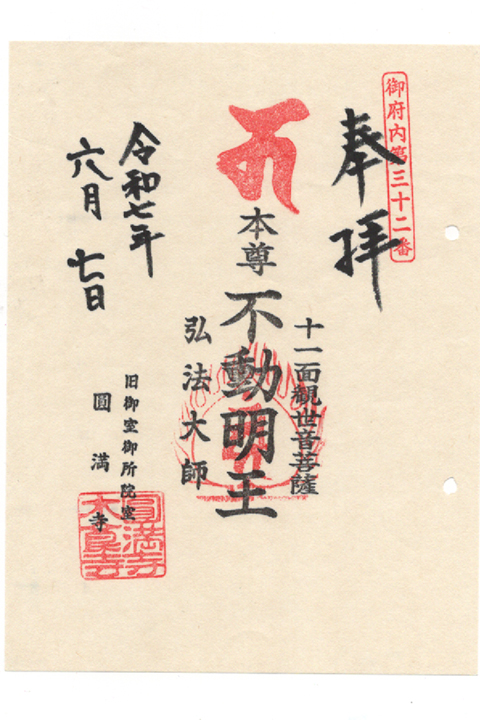 御府内第三十二番
奉拝
十一面観世音菩薩
本尊 不動明王
弘法大師
令和七年
六月七日
旧御室御所院室
圓満寺
圓満寺
木食寺